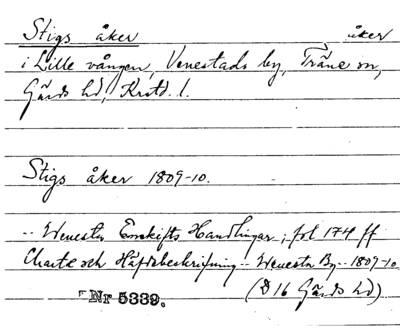 Stigs åker åker
i Lille vången, Venestads by, Träne sn,
Gärds hd, Krstd. l.
Stigs åker 1809-10.
-- Wenesta Enskifts Handlingar; fol 174 ff
Charta och Häfdebeskrifning -- Wenesta By -- 1809-10
Nr 5339. (D 16 Gärds hd)